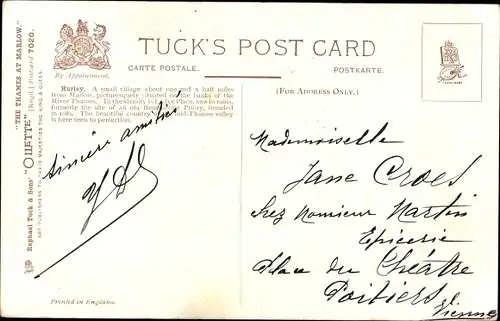 TUCK'S POST CARD
CARTE POSTALE.
POSTKARTE.
By Appointment.
(FOR ADDRESS ONLY.)
Hurley. A small village about one and a half miles
from Marlow, picturesquely situated on the banks of the
River Thames. In the vicinity is Ladye Place, now in ruins,
formerly the site of an old Benedictine Priory, founded
in 1086. The beautiful country of the mid-Thames valley
is here seen to perfection.
Sincère amitié
Mademoiselle
Jane Croes
chez Monsieur Martin
Epicerie
Place du Théâtre
Poitiers
Vienne
Raphael Tuck & Sons' "OILETTE" [Regd.] Postcard 7020.
"THE THAMES AT MARLOW."
ART PUBLISHERS TO THEIR MAJESTIES THE KING & QUEEN.
Printed in England.